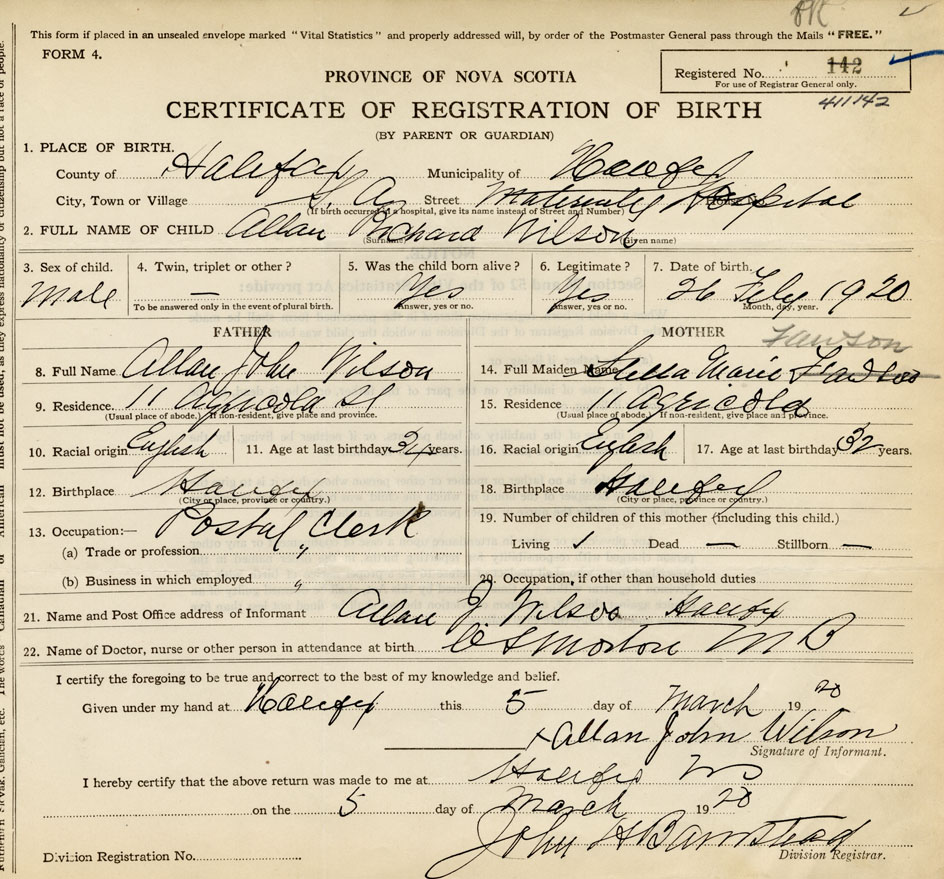 PR
This form if placed in an unsealed envelope marked "Vital Statistics" and properly addressed will, by order of the Postmaster General pass through the Mails "FREE."
FORM 4.
Registered No. 142
For use of Registrar General only.
411142
PROVINCE OF NOVA SCOTIA
CERTIFICATE OF REGISTRATION OF BIRTH
(BY PARENT OR GUARDIAN)
1. PLACE OF BIRTH.
County of Halifax Municipality of Halifax
City, Town or Village S. A. Street Maternity Hospital
(If birth occurred in a hospital, give its name instead of Street and Number)
2. FULL NAME OF CHILD Allan Richard Wilson
(Surname) (Given name)
3. Sex of child. Male
4. Twin, triplet or other? —
To be answered only in the event of plural birth.
5. Was the child born alive? Yes
Answer, yes or no.
6. Legitimate? Yes
Answer, yes or no.
7. Date of birth. 26 Feby 1920
Month, day, year.
FATHER
8. Full Name Allan John Wilson
9. Residence 11 Agricola St
(Usual place of abode.) If non-resident, give place and province.
10. Racial origin English 11. Age at last birthday 34 years.
12. Birthplace Halifax
(City or place, province or country.)
13. Occupation:— Postal Clerk
(a) Trade or profession "
(b) Business in which employed "
MOTHER
Lawson
14. Full Maiden Name Stella Marie Lawson
15. Residence 11 Agricola
(Usual place of abode.) If non-resident, give place and province.
16. Racial origin English 17. Age at last birthday 32 years.
18. Birthplace Halifax
(City or place, province or country.)
19. Number of children of this mother (including this child.)
Living ✓ Dead — Stillborn —
20. Occupation, if other than household duties
21. Name and Post Office address of Informant Allan J. Wilson Halifax
22. Name of Doctor, nurse or other person in attendance at birth. C S Morton M B
I certify the foregoing to be true and correct to the best of my knowledge and belief.
Given under my hand at Halifax this 5 day of March 1920
x Allan John Wilson
Signature of Informant.
I hereby certify that the above return was made to me at Halifax NS
on the 5 day of March 1920
John H Barnstead
Division Registration No. Division Registrar.